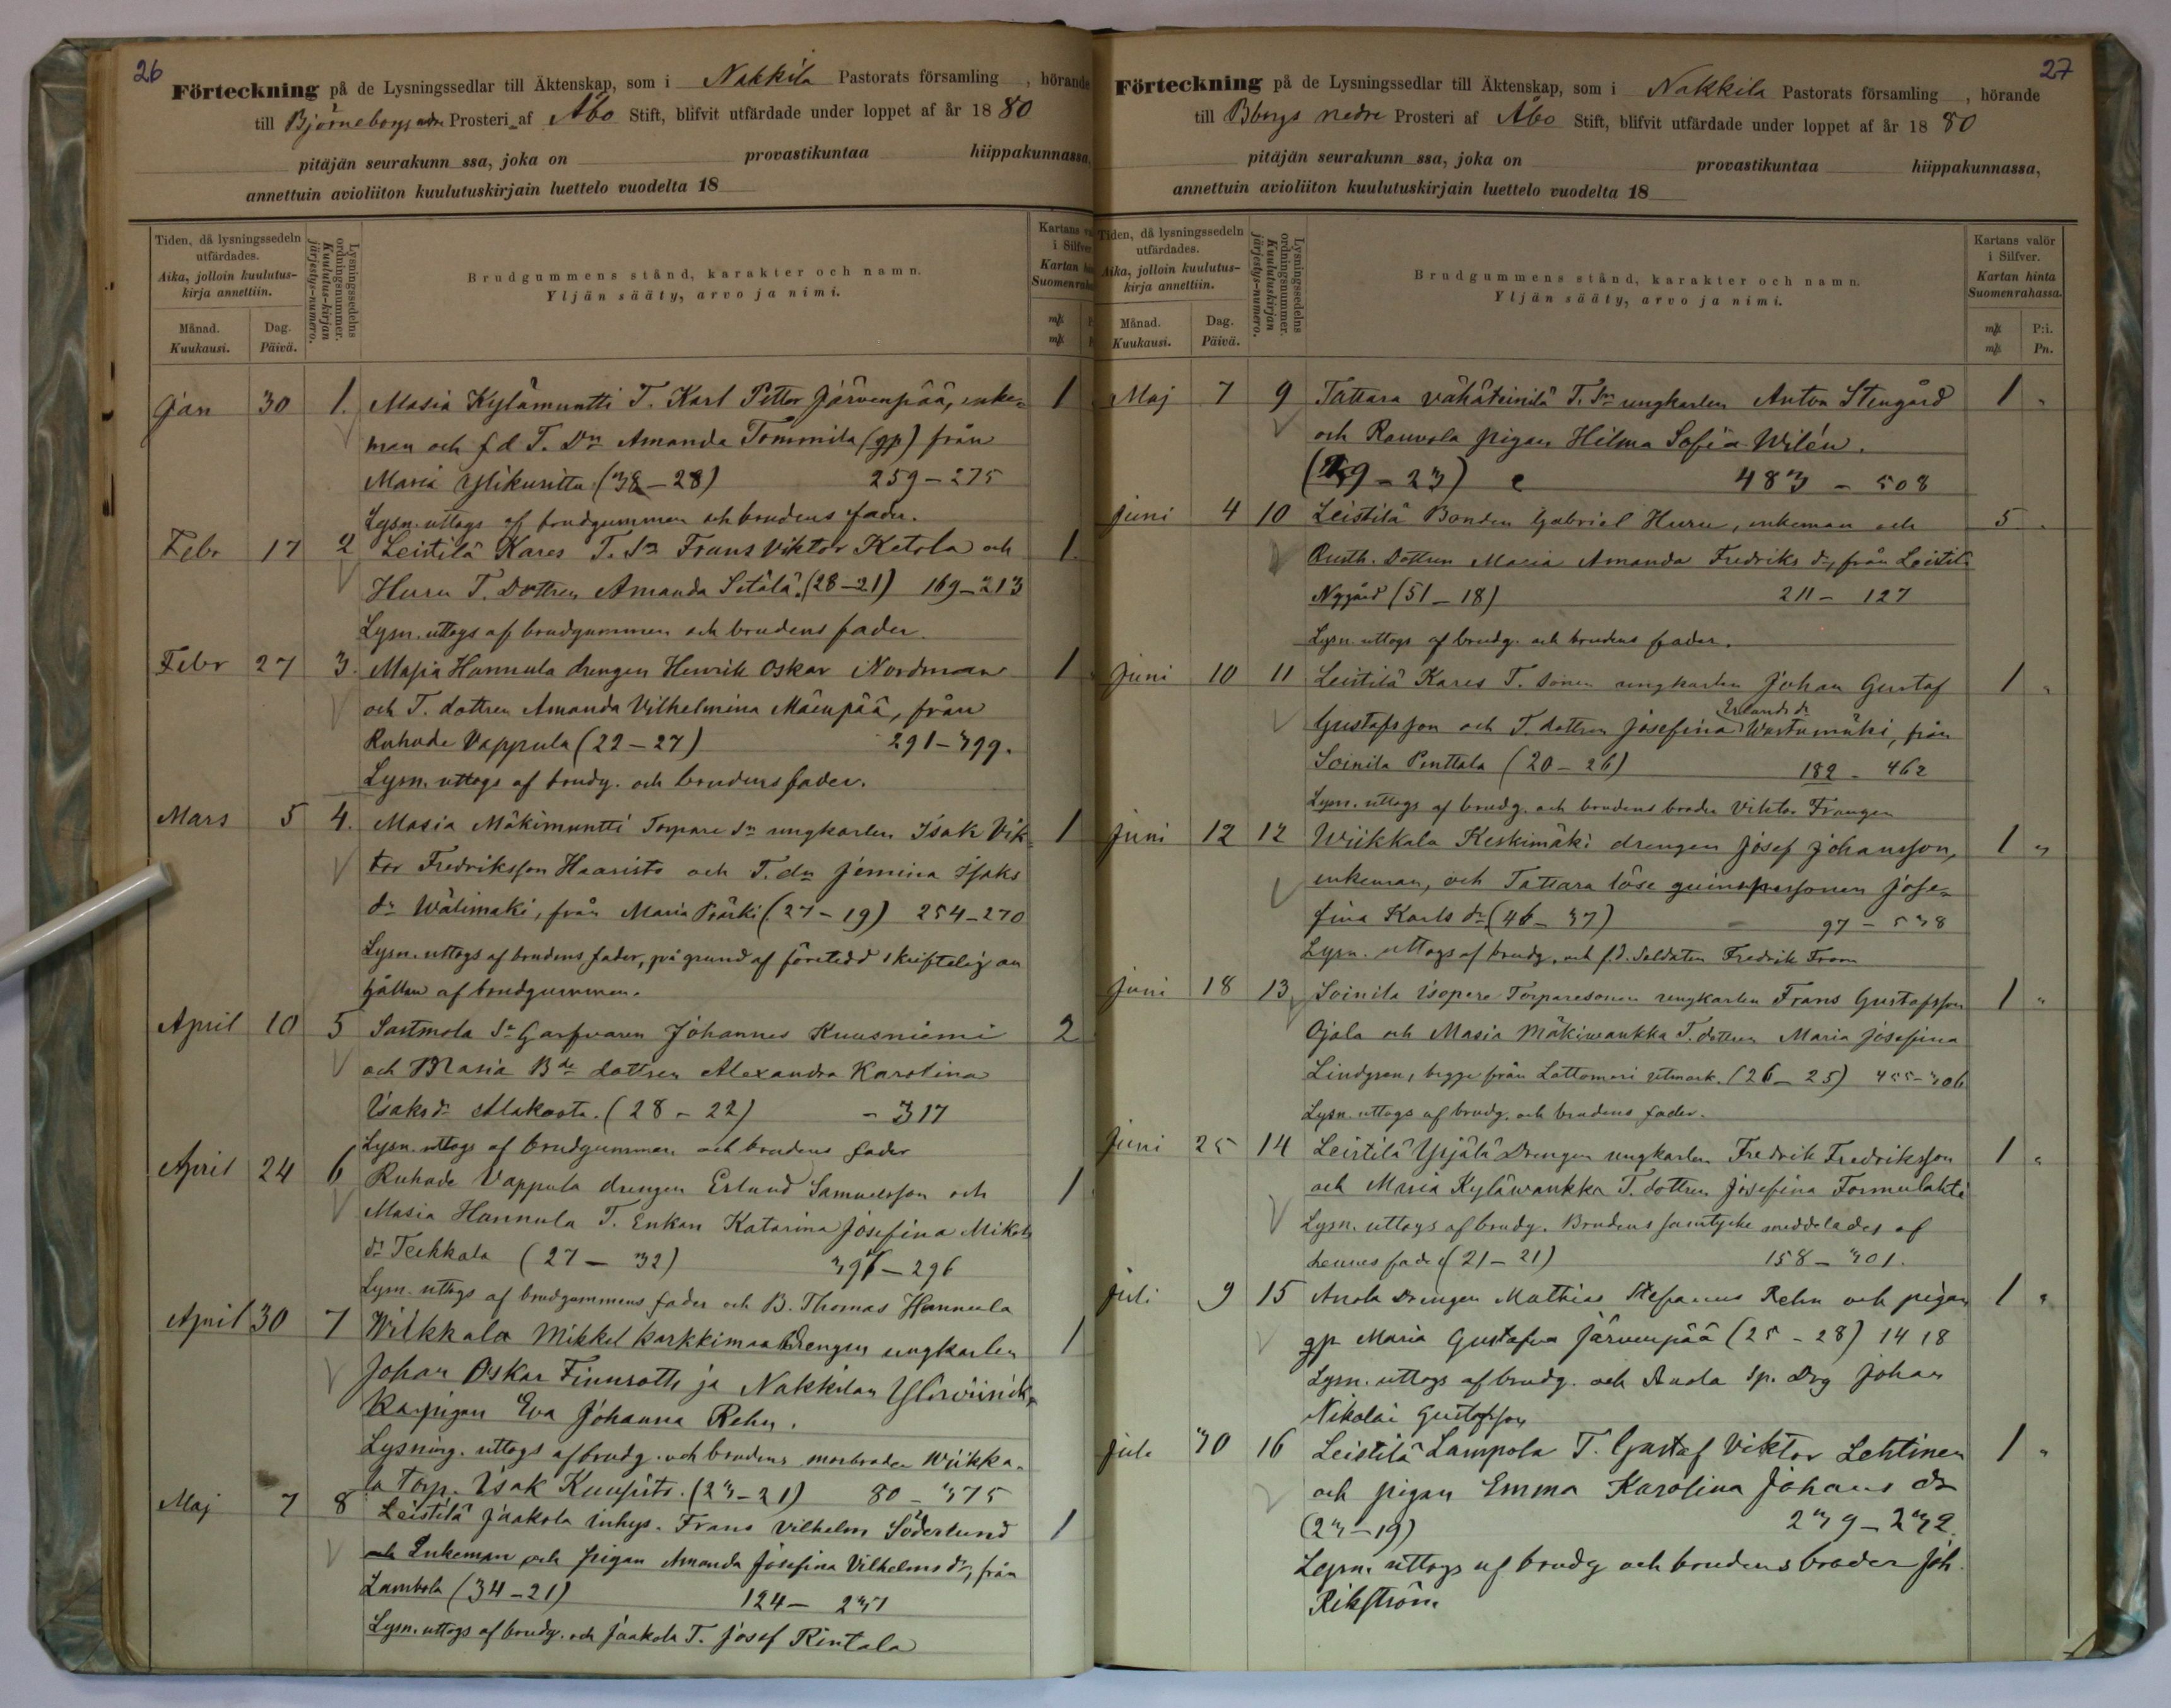 26
Förteckning på de Lysningssedlar till Äktenskap, som i Nakkila Pastorats församling , hörande
till Björneborgs nedre Prosteri af Åbo Stift, blifvit utfärdade under loppet af år 1880
pitäjän seurakunn ssa, joka on provastikuntaa hiippakunnassa,
annettuin avioliiton kuulutuskirjain luettelo vuodelta 18
Tiden, då lysningssedeln utfärdades.
Aika, jolloin kuulutus-kirja annettiin.
Månad. Kuukausi.
Dag. Päivä.
Lysningssedelns ordningsnummer.
Kuulutus-kirjan järjestys-numero.
Brudgummens stånd, karakter och namn.
Yljän sääty, arvo ja nimi.
Kartans
i Silfver
Kartan
Jan 30 1. Masia Kylämuntti T. Karl Petter Järvenpää, enke= 1
man och f d T. Dn Amanda Tommila (gp) från
Masia Ylikuritta (38-28) 259-275
Lysn. uttogs af brudgummen och brudens fader.
Febr 17 2 Leistilä Kares T. Sn Frans Viktor Ketola och 1
Huru T. Dottren Amanda Sitälä. (28-21) 169-213
Lysn. uttogs af brudgummen och brudens fader.
Febr 27 3. Masia Hannula drengen Henrik Oskar Nordman 1
och T. dottren Amanda Vilhelmina Mäenpää, från
Ruhade Vappula (22-27) 291-399.
Lysn. uttogs af brudg. och brudens fader.
Mars 5 4. Masia Mäkimuntti Torpare Sn ungkarlen Isak Vik= 1
tor Fredriksson Haaristo och T. dn Jemina Isaks
dr Wälimaki, från Masia Prärki (27-19) 254-270
Lysn. uttogs af brudens fader, på grund af företedd skriftelig an
hållan af brudgummen.
April 10 5 Sastmola Sn Garfvaren Johannes Kuusniemi 2
och Masia Bde dottren Alexandra Karolina
Isaks dr Alakoota. (28-22) - 317
Lysn. uttogs af brudgummen och brudens fader
April 24 6 Ruhade Vappula drengen Erland Samuelsson och 1
Masia Hannula T. Enkan Katarina Josefina Mikels
dr Teikkala (27-32) 396-296
Lysn. uttogs af brudgummens fader och B. Thomas Hannula
April 30 7 Wiikkala Mikkel karkkimaa Drengen ungkarlen 1
Johan Oskar Finnrotti ja Nakkilan Yliviinik=
ka pigan Eva Johanna Rehn.
Lysning. uttogs af brudg. och brudens morbroder Wiikka=
la torp. Isak Kuusisto. (23-21) 80-375
Maj 7 8 Leistilä Jaakola inhys. Frans Vilhelm Söderlund 1
Enkeman och pigan Amanda Josefina Vilhelms dr, från
Lambola (34-21) 124-231
Lysn. uttogs af brudg. och Jaakola T. Josef Rintala
27
Förteckning på de Lysningssedlar till Äktenskap, som i Nakkila Pastorats församling , hörande
till Bborgs nedre Prosteri af Åbo Stift, blifvit utfärdade under loppet af år 1880
pitäjän seurakunn ssa, joka on provastikuntaa hiippakunnassa,
annettuin avioliiton kuulutuskirjain luettelo vuodelta 18
Tiden, då lysningssedeln utfärdades.
Aika, jolloin kuulutus-kirja annettiin.
Månad. Kuukausi.
Dag. Päivä.
Lysningssedelns ordningsnummer.
Kuulutuskirjan järjestys-numero.
Brudgummens stånd, karakter och namn.
Yljän sääty, arvo ja nimi.
Kartans valör i Silfver.
Kartan hinta Suomenrahassa.
P:i.
Pn.
Maj 7 9 Tattara vähäteinilä T. Sn ungkarlen Anton Stengård 1 "
och Rauvola pigan Hilma Sofia Wilén.
(29-23) 483-508
Juni 4 10 Leistilä Bonden Gabriel Huru, enkeman och 5
Rusth. Dottren Maria Amanda Fredriks dr, från Leistilä
Nygård (51-18) 211-127
Lysn. uttogs af brudg. och brudens fader.
Juni 10 11 Leistilä Kares T. Sonen ungkarlen Johan Gustaf 1 "
Gustafsson och T. dottren Josefina Erlands dr Wartumäki, från
Soinila Penttala (20-26) 182-462
Lysn. uttogs af brudg. och brudens broder Viktor Frangen
Juni 12 12 Wiikkala Keskimäki drengen Josef Johansson, 1 "
enkeman, och Tattara löse qvinspersonen Jose=
fina Karls dr (46-37) 97-538
Lysn. uttogs af brudg. och f.d. Soldaten Fredrik From
Juni 18 13 Soinila Isopere Torparesonen ungkarlen Frans Gustafsson 1 "
Ojala och Masia Mäkiwaukka T. dottren Maria Josefina
Lindgren, begge från Lattomeri utmark. (26-25) 455-306
Lysn. uttogs af brudg. och brudens fader.
Juni 25 14 Leistilä Yrjälä Drengen ungkarlen Fredrik Fredriksson 1 "
och Masia Kyläwaukka T. dottren Josefina Tormulahti
Lysn. uttogs af brudg. Brudens samtycke meddelades af
hennes fader (21-21) 158-301.
Juli 9 15 Anola Drengen Mathias Stefanus Rehn och pigan 1 "
gp Maria Gustafva Järvenpää (25-28) 14 18
Lysn. uttogs af brudg. och Anola Sp. Drg Johan
Nikolai Gustafsson
Juli 30 16 Leistilä Lampola T. Gustaf Viktor Lehtinen 1 "
och pigan Emma Karolina Johans dr
(23-19) 239-232.
Lysn. uttogs af brudg och brudens broder Joh.
Rikström.